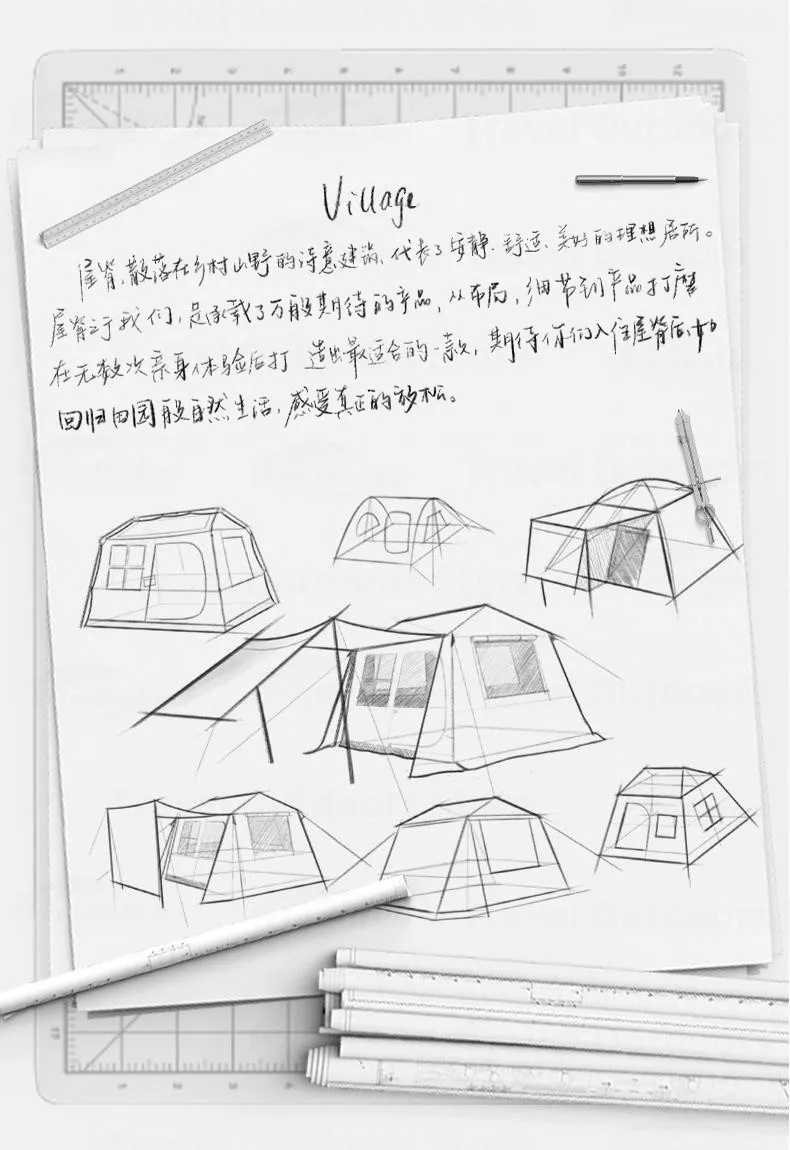 Travel Outdoors Store
Travel Outdoors
Village
屋脊,散落在乡村山野的诗意建筑,代表了安静、舒适、美好的理想居所。
屋脊之于我们,是承载了万般期待的产品,从布局,细节到产品打磨
在无数次亲身体验后打 造出最适合的一款,期待你们入住屋脊后,如
回归田园般自然生活,感受真正的放松。
Travel Outdoors
Outdoors Store
Travel Outdoors
Travel Outdoors Store
Travel Outdoors